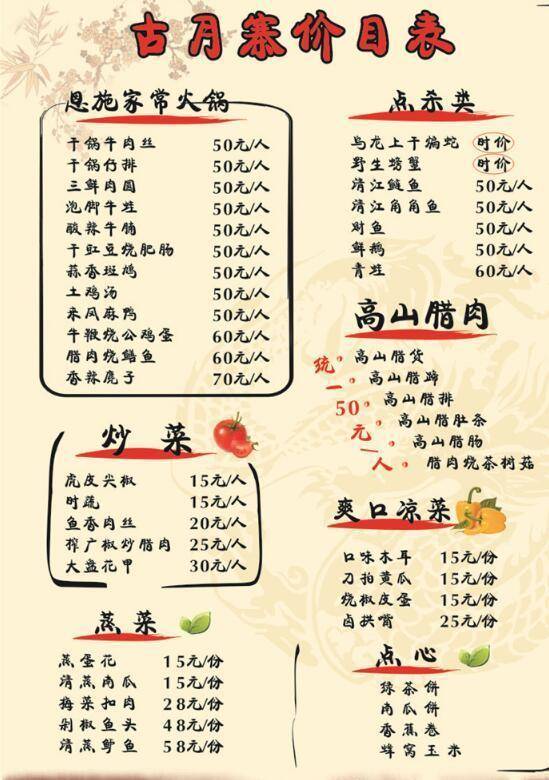 古月寨价目表
恩施家常火锅
干锅牛肉丝 50元/人
干锅仔排 50元/人
三鲜肉圆 50元/人
泡脚牛蛙 50元/人
酸辣牛脯 50元/人
干豇豆烧肥肠 50元/人
蒜香斑鸠 50元/人
土鸡汤 50元/人
来凤麻鸭 50元/人
牛鞭烧公鸡蛋 60元/人
腊肉烧鳝鱼 60元/人
香辣鹿子 70元/人
炒菜
虎皮尖椒 15元/人
时蔬 15元/人
鱼香肉丝 20元/人
榨广椒炒腊肉 25元/人
大盆花甲 30元/人
蒸菜
蒸蛋花 15元/份
清蒸南瓜 15元/份
梅菜扣肉 28元/份
剁椒鱼头 48元/份
清蒸鲈鱼 58元/份
点杀类
乌龙上干煸蛇 时价
野生螃蟹 时价
清江鲢鱼 50元/人
清江角角鱼 50元/人
财鱼 50元/人
鲜鹅 50元/人
青蛙 60元/人
高山腊肉
统一50元/人
高山腊货
高山腊蹄
高山腊排
高山腊肚条
高山腊肠
腊肉烧茶树菇
爽口凉菜
口味木耳 15元/份
刀拍黄瓜 15元/份
烧椒皮蛋 15元/份
卤拱嘴 25元/份
点心
绿茶饼
南瓜饼
香蕉卷
蜂窝玉米